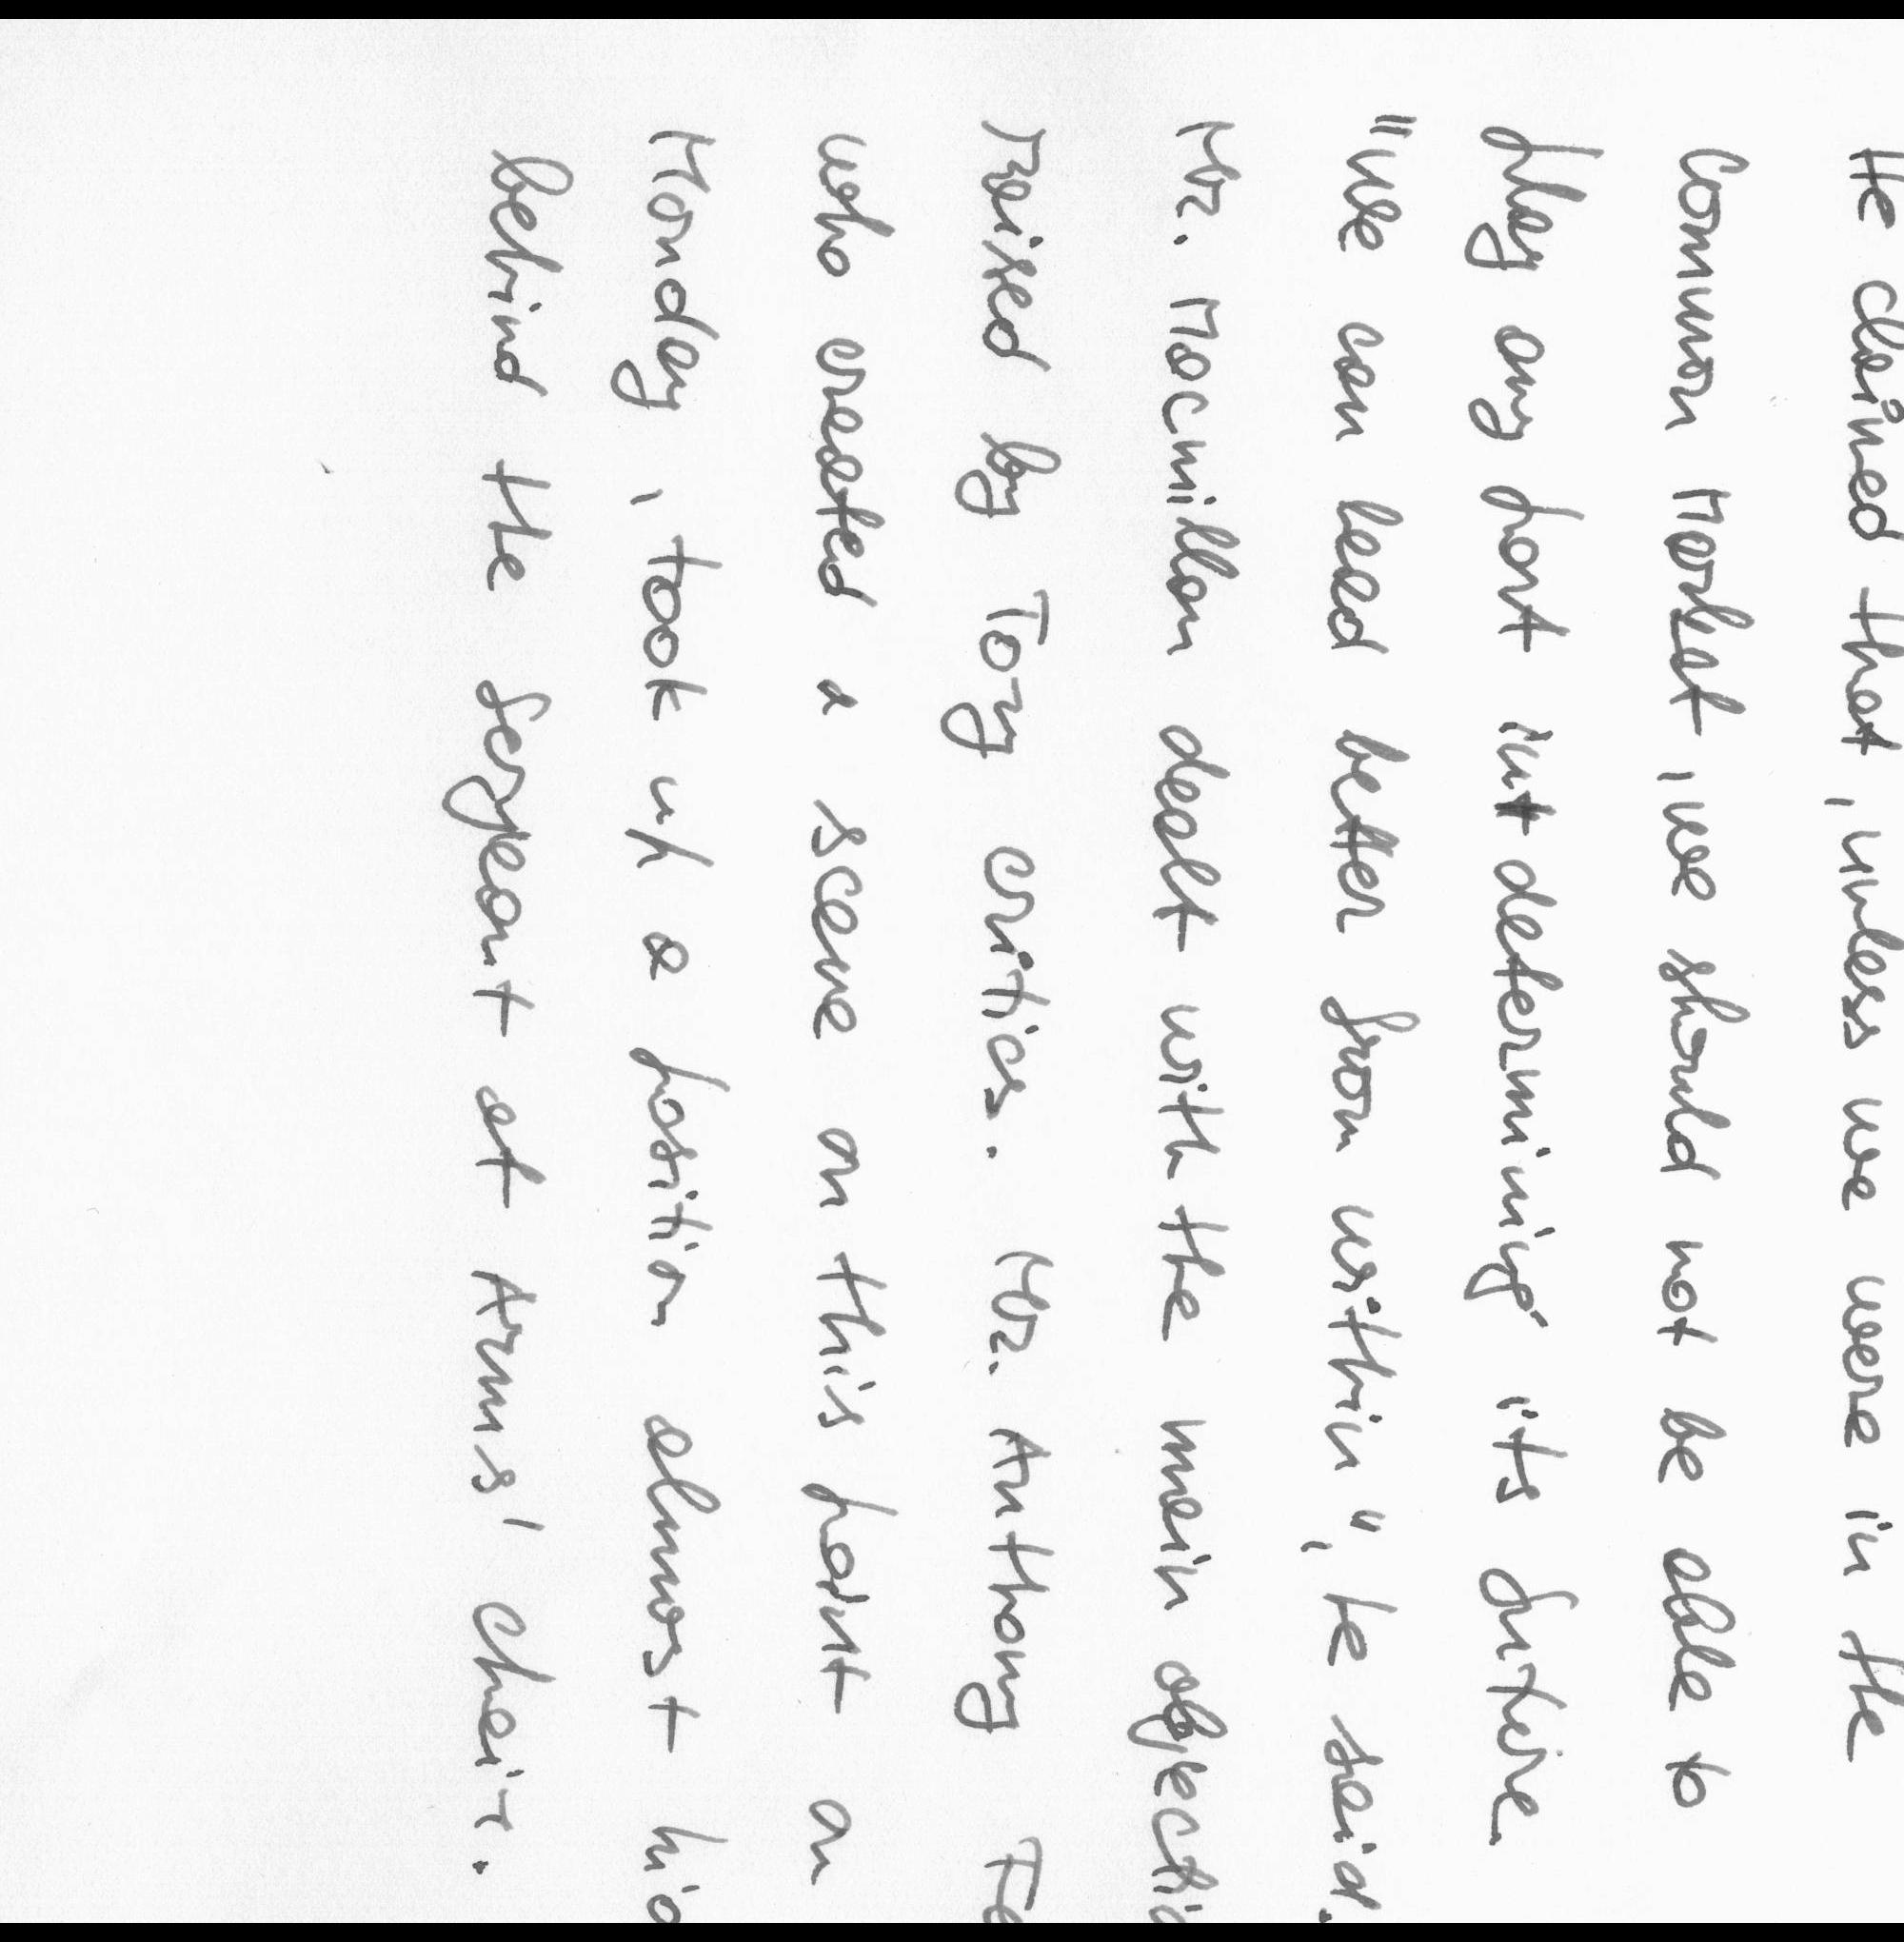 He claimed that, unless we were in the
Common Market, we should not be able to
play any part in determining its future.
"We can lead better from within", he said.
Mr. Macmillan dealt with the main objectio
raised by Tory critics. Mr. Anthony Fe
who created a scene on this point on
Monday, took up a position almost hid
behind the Serjeant at Arms' chair.